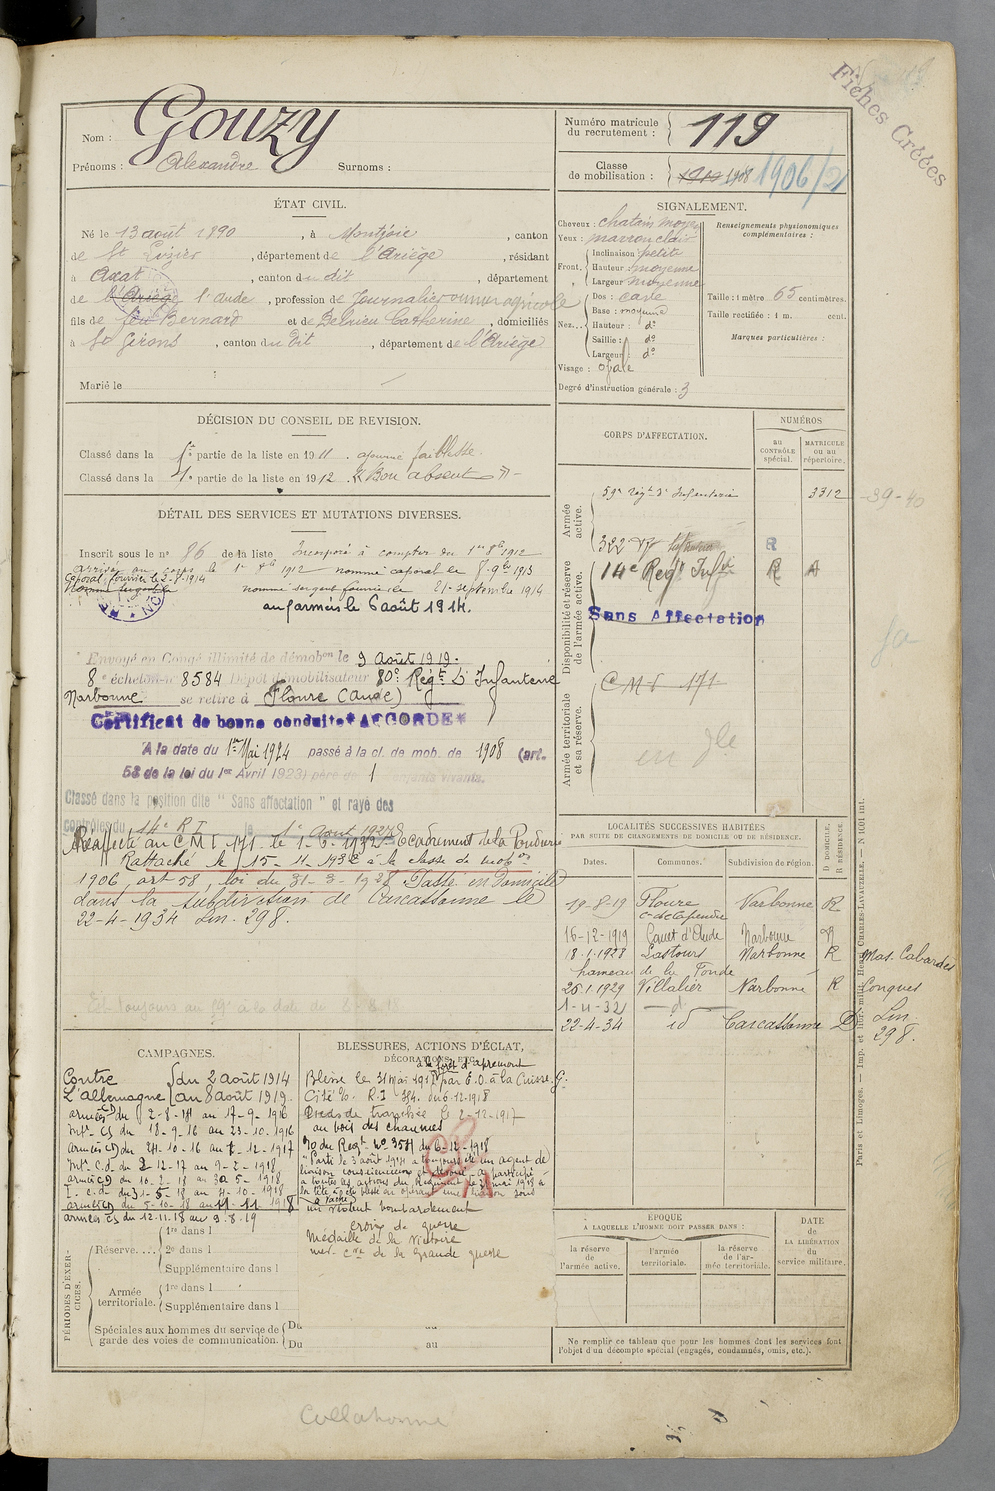 Fiches Créées
Nom : Gouzy
Prénoms : Alexandre Surnoms :
Numéro matricule du recrutement : 119
Classe de mobilisation : 1910 1908 1906/2
ÉTAT CIVIL.
Né le 13 août 1890, à Montjoie, canton
de St Lizier, département de l'Ariège, résidant
à Axat, canton du dit, département
de l'Ariège l'Aude, profession de Journalier ouvrier agricole
fils de feu Bernard et de Delrieu Catherine, domiciliés
à St Girons, canton du dit, département de l'Ariège
Marié le
SIGNALEMENT.
Cheveux : chatain moyen
Yeux : marron clair
Front. Inclinaison petite
Hauteur : moyenne
Largeur moyenne
Nez... Dos : cave
Base : moyenne
Hauteur : do
Saillie : do
Largeur : do
Visage : ovale
Degré d'instruction générale : 3
Renseignements physionomiques complémentaires :
Taille : 1 mètre 65 centimètres.
Taille rectifiée : 1 m. cent.
Marques particulières :
DÉCISION DU CONSEIL DE REVISION.
Classé dans la 5e partie de la liste en 1911. ajourné faiblesse
Classé dans la 1e partie de la liste en 1912. Bon absent
DÉTAIL DES SERVICES ET MUTATIONS DIVERSES.
Inscrit sous le no 86 de la liste Incorporé à compter du 1er 8bre 1912
arrivé au corps le 1er 8bre 1912 nommé caporal le 8 9bre 1913
Caporal fourrier le 2-8-1914
nommé sergent fourrier le 21 septembre 1914
aux armées le 6 août 1914.
Envoyé en Congé illimité de démobon le 9 Août 1919.
8e échelon no 8584 Dépôt démobilisateur 80e Régt d'Infanterie
Narbonne se retire à Floure (Aude)
Certificat de bonne conduite ACCORDÉ
A la date du 1er Mai 1924 passé à la cl. de mob. de 1908 (art.
58 de la loi du 1er Avril 1923) père de 1 enfants vivants.
Classé dans la position dite "Sans affectation" et rayé des
contrôles du 14e R.I. le 1er Août 1927
Réaffecté au C.M.I. 171 le 1-6-1932 Ecadrement de la Poudrerie
Rattaché le 15-11-1932 à la classe de mobon
1906, art 58, loi du 31-3-1928 Passé en Domicile
dans la subdivision de Carcassonne le
22-4-1934 Lin. 298.
Est toujours au 59e à la date du 8-8-18
CORPS D'AFFECTATION.
NUMÉROS
au CONTRÔLE spécial.
MATRICULE ou au répertoire.
Armée active.
59e Régt d'Infanterie 3312
39-40
Disponibilité et réserve de l'armée active.
322 RI R
14e Régt Infie R A
Sans Affectation
Armée territoriale et sa réserve.
C M I 171
LOCALITÉS SUCCESSIVES HABITÉES
PAR SUITE DE CHANGEMENTS DE DOMICILE OU DE RÉSIDENCE.
Dates. Communes. Subdivision de région. D DOMICILE. R RÉSIDENCE
19-8-19 Floure Narbonne R
16-12-1919 Canet d'Aude Narbonne
18.1.1928 Lastours Narbonne R Mas. Cabardès
hameau de la Fonde
26.1.1929 Villalier Narbonne R Conques
1-4-32 d
22-4-34 id Carcassonne D Lin. 298.
CAMPAGNES.
Contre l'Allemagne du 2 août 1914 au 8 août 1919.
armées du 2-8-14 au 17-9-1916
Intr CS du 18-9-16 au 23-10-1916
armées CD du 24-10-16 au 1-12-1917
Int. C.d. du 2-12-17 au 9-2-1918
armées CD du 10-2-18 au 30-5-1918
I. c.d du 31-5-18 au 4-10-1918
armées CD du 5-10-18 au 11-11-1918
armées CS du 12-11-18 au 9-8-19
BLESSURES, ACTIONS D'ÉCLAT,
DÉCORATIONS, ETC.
à la forêt d'apremont
Blessé le 31 Mai 1918 par E.O. à la Cuisse G.
Cité O. R.I 354 du 6-12-1918
Pieds de tranchée le 2-12-1917
au bois des chaumes
O du Régt No 354 du 6-12-1918
"Parti le 3 août 1914 a toujours été un agent de
liaison consciencieux et dévoué. a participé
à toutes les actions du Régiment
un violent bombardement
croix de guerre
Médaille de la victoire
Med. Cve de la Grande guerre
PÉRIODES D'EXERCICES.
Réserve.... 1re dans l
2e dans l
Supplémentaire dans l
Armée territoriale. 1re dans l
Supplémentaire dans l
Spéciales aux hommes du service de garde des voies de communication. Du au
Du au
ÉPOQUE
A LAQUELLE L'HOMME DOIT PASSER DANS :
la réserve de l'armée active.
l'armée territoriale.
la réserve de l'armée territoriale.
DATE DE LA LIBÉRATION du service militaire.
Ne remplir ce tableau que pour les hommes dont les services font
l'objet d'un décompte spécial (engagés, condamnés, omis, etc.).
Paris et Limoges. — Imp. et libr. milit. Henri CHARLES-LAVAUZELLE. — N 1601 int.